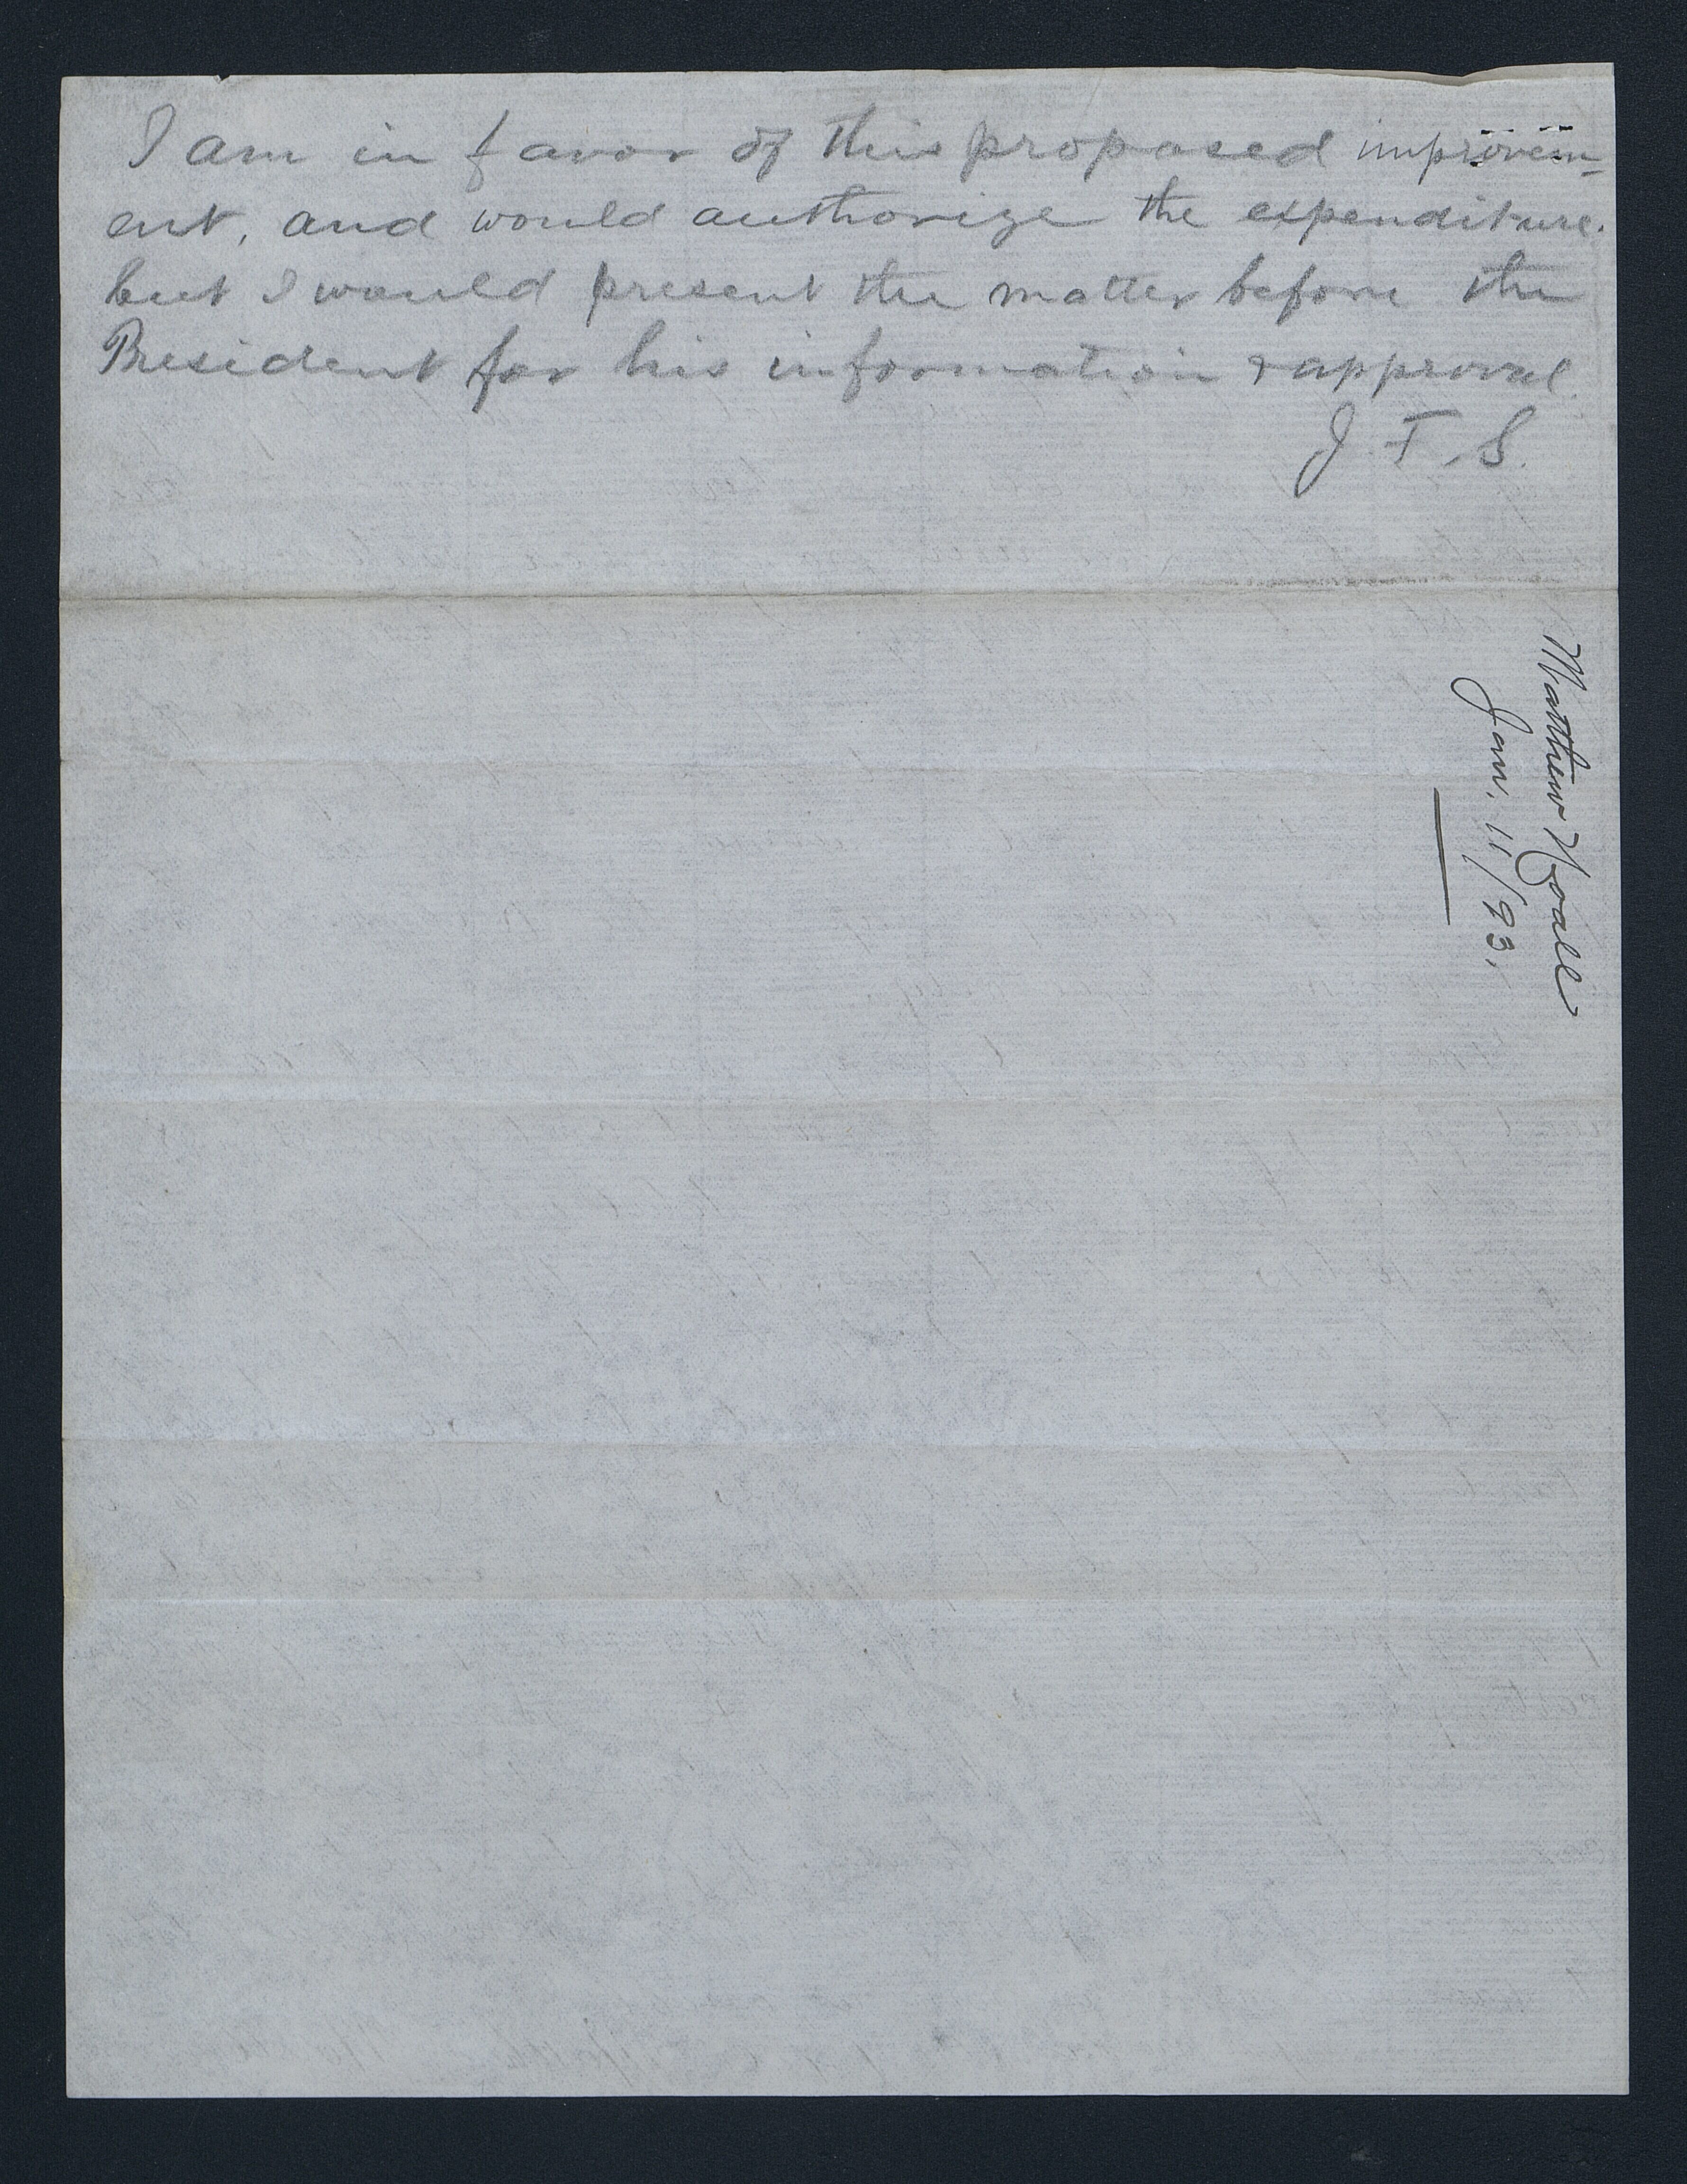 I am in favor of this proposed improvem-
ent, and would authorize the expenditure.
but I would present the matter before the
President for his information & approval.
J. F. S.
Matthew Noall
Jan. 11/93.